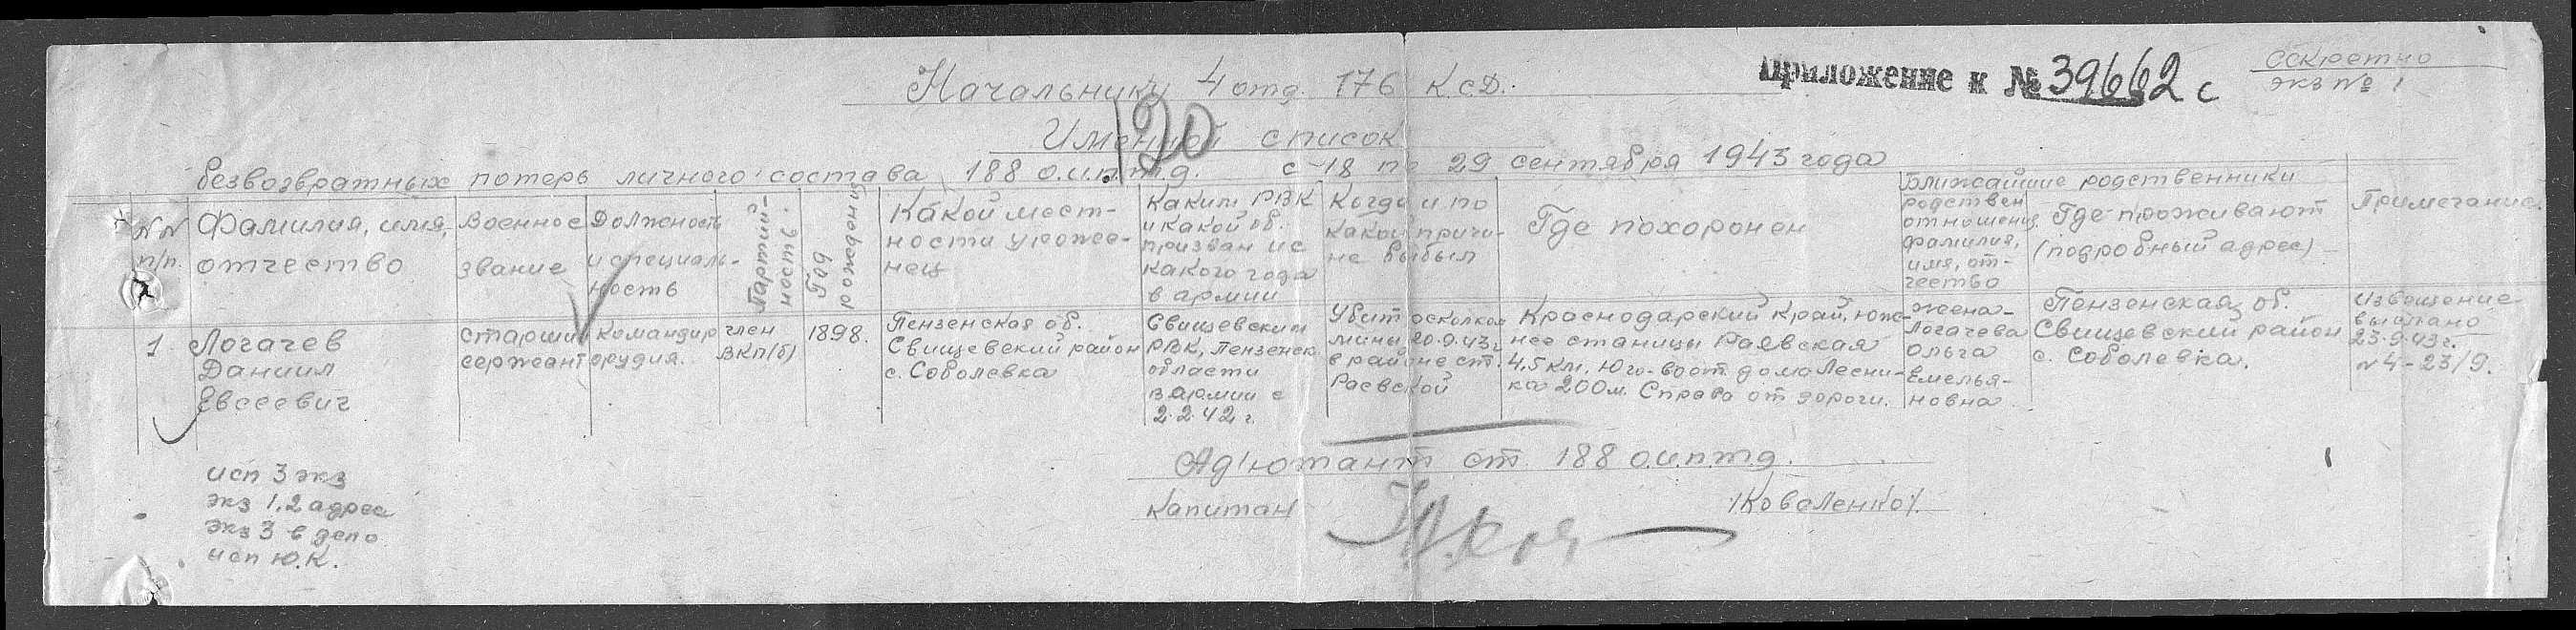 Приложение к № 39662 с
Секретно
экз № 1
Начальнику 4 отд. 176 КсД.
120
Именной список
безвозвратных потерь личного состава 188 о.и.п.т.д. с 18 по 29 сентября 1943 года
№№ п/п.
Фамилия, имя,
отчество
Военное
звание
Должность
и специаль-
ность
Партий-
ность
Год
рождения
Какой мест-
ности уроже-
нец
Каким РВК
и какой об.
призван и с
какого года
в армии
Когда и по
какой причи-
не выбыл
Где похоронен
Ближайшие родственники
родствен
отношения,
фамилия,
имя, от-
чество
Где проживают
(подробный адрес)
Примечание.
1
Логачев
Даниил
Евсеевич
старший
сержант
командир
орудия.
член
ВКП(б)
1898.
Пензенская об.
Свищевский район
с. Соболевка
Свищевским
РВК, Пензенск.
области
в армии с
2.2.42 г.
Убит осколком
мины 20.9.43г.
в районе ст.
Раевской
Краснодарский край, юж-
нее станицы Раевская
4,5 км. Юго-вост. дома Лесни-
ка 200м. Справа от дороги.
жена-
Логачева
Ольга
Емелья-
новна
Пензенская об.
Свищевский район
с. Соболевка.
Извещение
выслано
23.9.43 г.
№ 4-23/9.
Ад'ютант ст. 188 о.и.п.т.д.
капитан
/Коваленко/.
исп 3 экз
экз 1,2 адрес
экз 3 в дело
исп Ю.К.